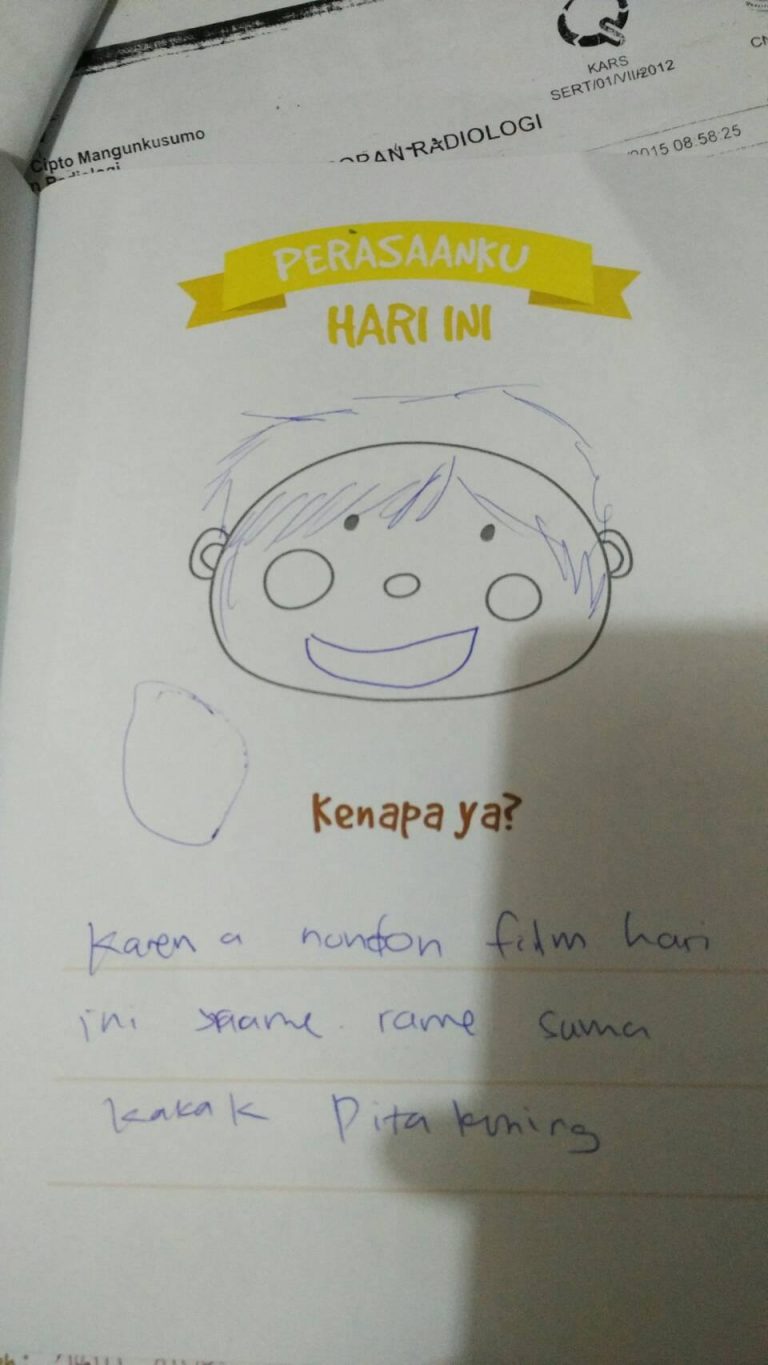 KARS
SERT/01/VII/2012
CN
Cipto Mangunkusumo
ORAN RADIOLOGI
2015 08:58:25
n Radiologi
PERASAANKU
HARI INI
Kenapa ya?
Karena nonton film hari
ini raame rame suma
kakak Pita kuning